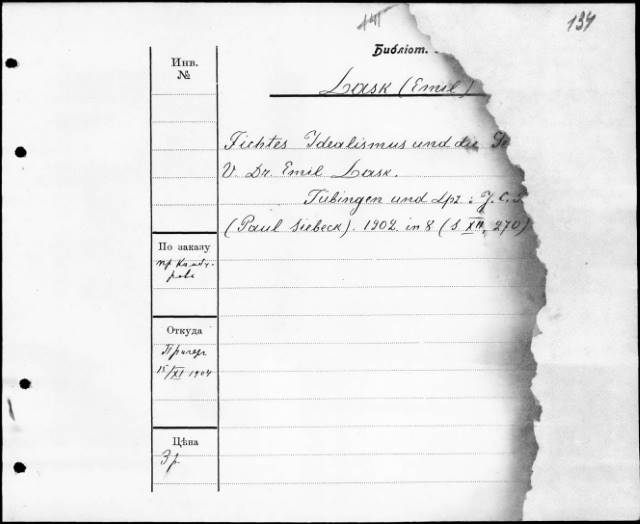 134
Библіот.
Инв.
№
Lask (Emil)
Fichtes Idealismus und die Ge
V. Dr. Emil Lask.
Tübingen und Lpz.: J. C.
(Paul Siebeck). 1902. in 8 (S. XII, 270)
По заказу
пр.
Откуда
15/XI 1904
Цѣна
3 р